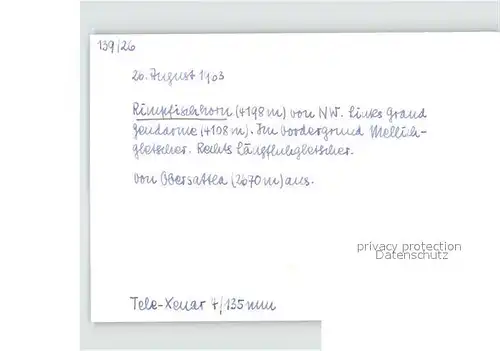 139/26
26. August 1963
Rimpfischhorn (4198 m) von NW. Links Grand
Gendarme (4108 m). Im Vordergrund Mellich-
gletscher. Rechts Längfluhgletscher.
von Obersattla (2670 m) aus.
privacy protection
Datenschutz
Tele-Xenar 4/135 mm